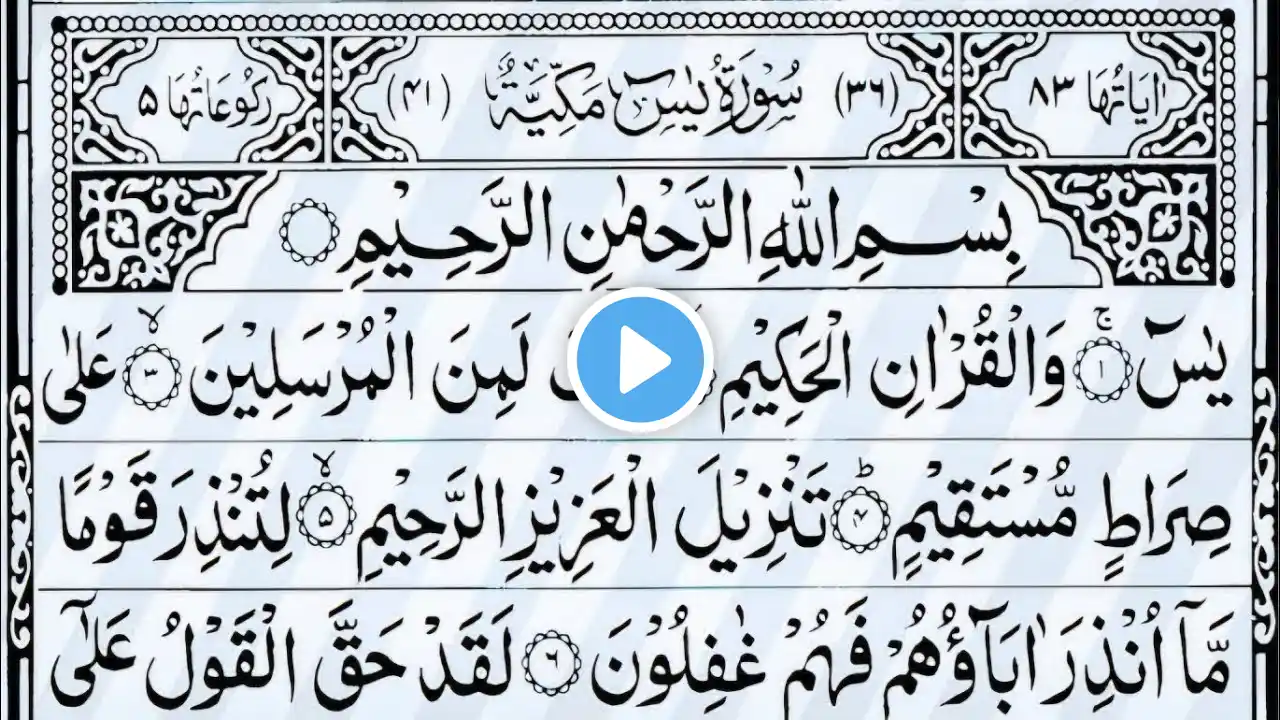 اٰيَاتُهَا ٨٣ (٣٦) سُوْرَةُ يٰسٓ مَكِّيَّةٌ (٤١) رُكُوْعَاتُهَا ٥
بِسْمِ اللّٰهِ الرَّحْمٰنِ الرَّحِيْمِ
يٰسٓ ۚ ﴿١﴾ وَالْقُرْاٰنِ الْحَكِيْمِ لَمِنَ الْمُرْسَلِيْنَ ۙ ﴿٣﴾ عَلٰى
صِرَاطٍ مُّسْتَقِيْمٍ ؕ ﴿۴﴾ تَنْزِيْلَ الْعَزِيْزِ الرَّحِيْمِ ۙ ﴿۵﴾ لِتُنْذِرَ قَوْمًا
مَّآ اُنْذِرَ اٰبَآؤُهُمْ فَهُمْ غٰفِلُوْنَ ﴿٦﴾ لَقَدْ حَقَّ الْقَوْلُ عَلٰٓى